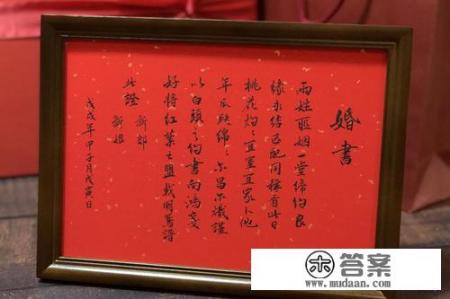 婚書
兩姓聯姻一堂締約良
緣永结匹配同稱看此日
桃花灼々宜室宜家卜他
年瓜瓞綿々尔昌尔熾謹
以白頭之约書向鴻箋
好將紅葉之盟載明鴛譜
此證 新郎
新娘
戊戌年甲子月戊寅日
答案
www.mudaan.com